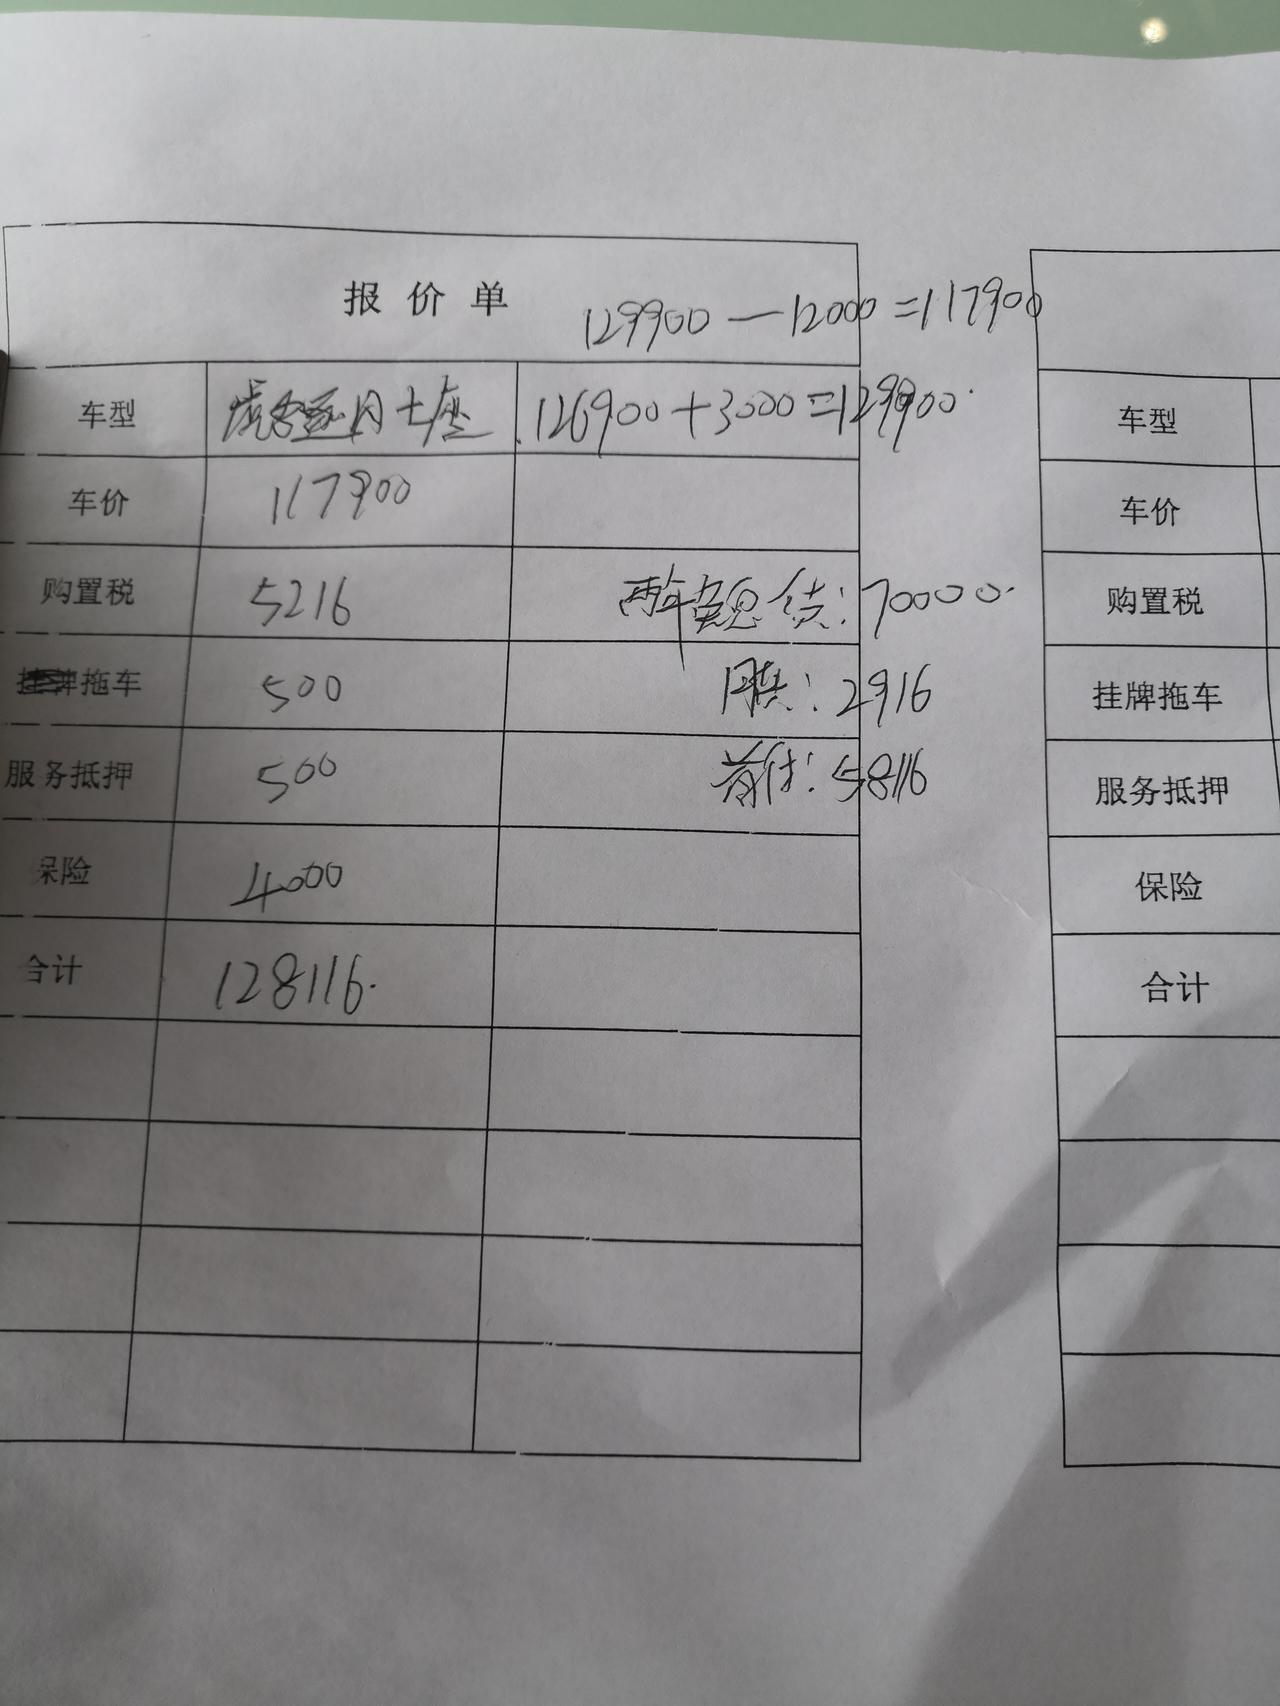 报价单
129900-12000=117900
车型 虎8逐月七座 126900+3000=129900.
车价 117900
购置税 5216 两年免息 贷: 70000.
挂牌拖车 500 月供: 2916
服务抵押 500 首付: 58116
保险 4000
合计 128116.
车型
车价
购置税
挂牌拖车
服务抵押
保险
合计